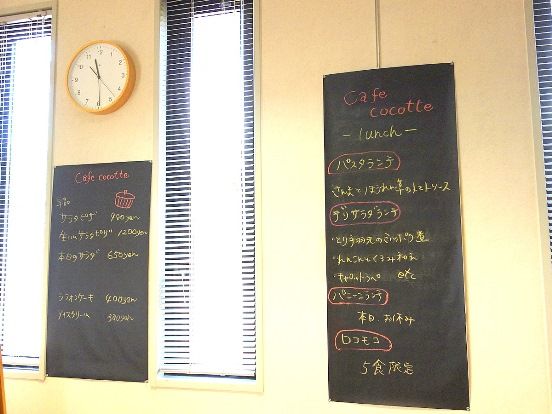 Cafe cocotte
サラダピザ 980yen
生ハムサラダピザ 1200yen
本日のサラダ 650yen
シフォンケーキ 400yen
アイスクリーム 380yen
Cafe
cocotte
- lunch -
パスタランチ
さんまとほうれん草のトマトソース
デリサラダランチ
・とり手羽元のさっぱり煮
・れんこんとくるみ和え
・キャロットラペ etc
パニーニランチ
本日、お休み
ロコモコ
5食限定